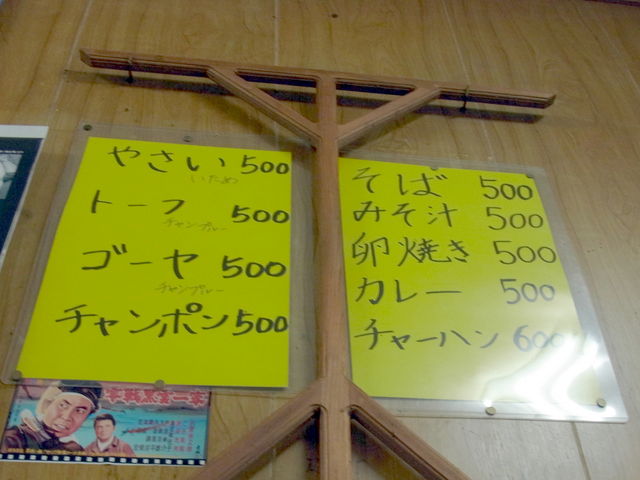 やさい 500
いため
トーフ 500
チャンプルー
ゴーヤ 500
チャンプルー
チャンポン 500
そば 500
みそ汁 500
卵焼き 500
カレー 500
チャーハン 600